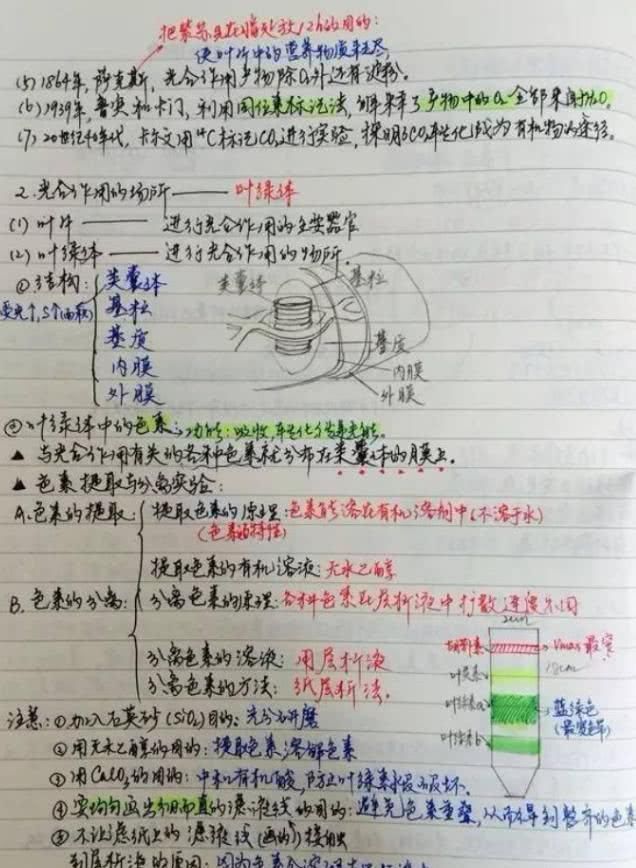 把紫苏放在暗处放12h的目的:
使叶片中的营养物质耗尽
(5) 1864年, 萨克斯, 光合作用产物除O₂外还有淀粉。
(6) 1939年, 鲁宾和卡门, 利用同位素标记法, 产物中的O₂全部来自H₂O。
(7) 20世纪40年代, 卡尔文用¹⁴C标记CO₂进行实验, 探明了CO₂转化成为有机物的途径。
2. 光合作用的场所——叶绿体
(1) 叶片——进行光合作用的主要器官
(2) 叶绿体——进行光合作用的场所.
①结构: 类囊体
基粒
基质
内膜
外膜
类囊体 基粒
基质
内膜
外膜
②叶绿体中的色素: 功能: 吸收, 转化光能。
▲ 与光合作用有关的各种色素就分布在类囊体的膜上.
▲ 色素提取与分离实验:
A. 色素的提取: 提取色素的原理: 色素能溶在有机溶剂中(不溶于水)
(色素的特性)
提取色素的有机溶液: 无水乙醇
B. 色素的分离: 分离色素的原理: 各种色素在层析液中扩散速度不同
分离色素的溶液: 用层析液
分离色素的方法: 纸层析法.
2cm
胡萝卜素 Vmax 最窄
叶黄素 18cm
叶绿素a 蓝绿色
叶绿素b
注意: ①加入石英砂(SiO₂)目的: 充分研磨
②用无水乙醇的目的: 提取色素溶解色素
③用CaCO₃的目的: 中和有机酸, 防止叶绿素被破坏.
④要均匀画出细而直的滤液线的目的: 避免色素重叠, 从而得到整齐的色素
⑤不让滤纸上的滤液线(画的)接触
到层析液的原因: 因为色素会溶解在层析液中